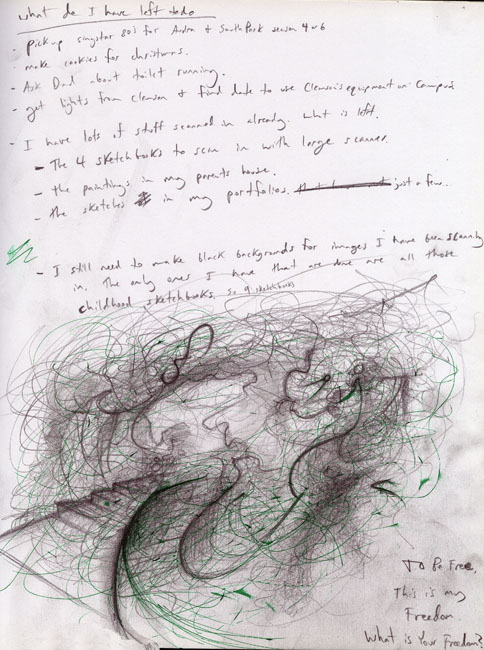 what do I have left todo
- Pick up singstar 80's for Andra & South Park season 4 or 6
- make cookies for christmas.
- Ask Dad about toilet running.
- get lights from Clemson & find date to use Clemson's equipment on Campus
- I have lots of stuff scanned in already. what is left.
- The 4 sketchbooks to scan in with large scanner.
- the paintings in my parents house.
- the sketches in my portfolios. just a few..
- I still need to make black backgrounds for images I have been scanning
in. The only ones I have that are done are all those
childhood sketchbooks. So 9 sketchbooks
To Be Free,
This is my
Freedom
What is Your Freedom?